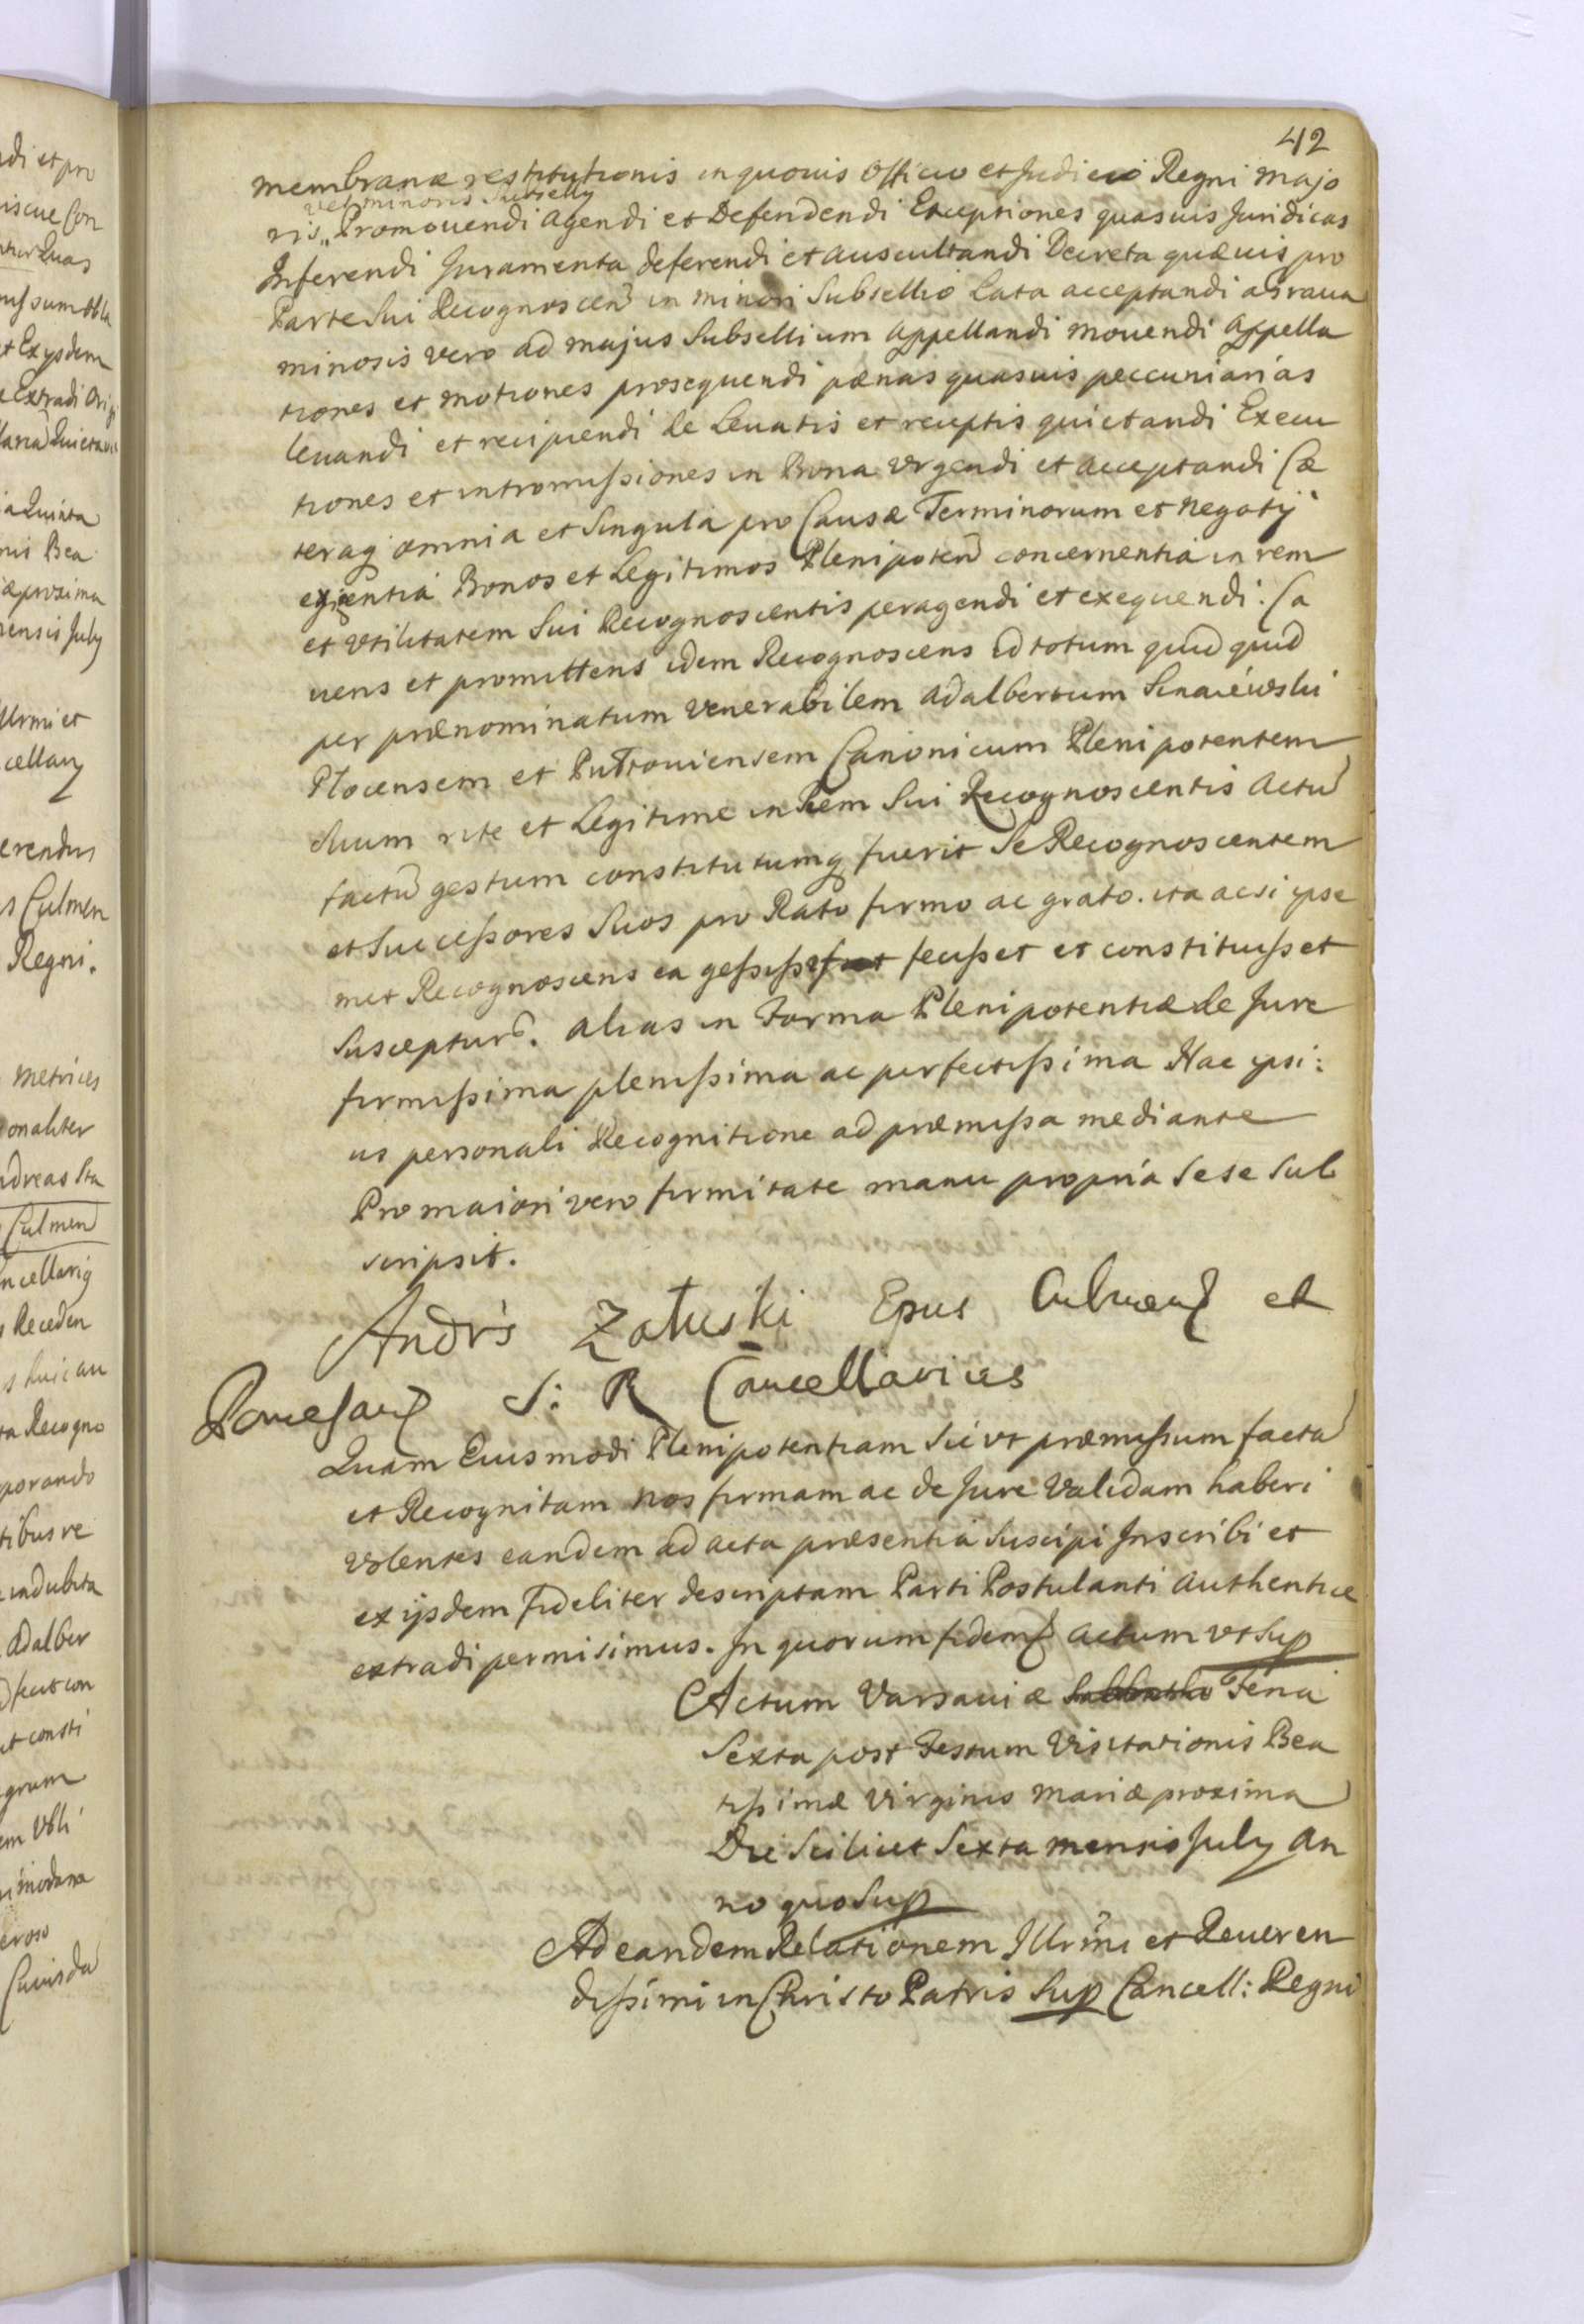 42
membranæ restitutionis in quouis Officio et Judicio Regni Majo
vel minoris Subselly
ris,, Promouendi Agendi et Defendendi Exceptiones quasuis Juridicas
Inferendi Juramenta deferendi et auscultandi Decreta quæuis pro
Parte Sui Recognoscen in minori Subsellio Lata acceptandi a Graua
minosis vero ad majus Subsellium Appellandi mouendi Appella
tiones et motiones prosequendi pœnas quasuis peccuniarias
leuandi et recipiendi de Leuatis et receptis quietandi Execu
tiones et intromissiones in Bona vrgendi et acceptandi Cæ
teraq omnia et Singula pro Causæ Terminorum et negotij
exigentia Bonos et Legitimos Plenipoten concernentia in rem
et vtilitatem Sui Recognoscentis peragendi et exequendi. Ca
uens et promittens idem Recognoscens id totum quid quid
per prænominatum Venerabilem Adalbertum
Plocensem et Canonicum Plenipotentem
Suum rite et Legitime in Rem Sui Recognoscentis Actu
factu gestum constitutumq fuerit Se Recognoscentem
et Successores Suos pro Rato firmo ac grato. ita ac si ipse
met Recognoscens ea gessisset fecisset et constituisset
Suscepturu. alias in Forma Plenipotentiæ de Jure
firmissima plenissima ac perfectissima Hac ipsi:
us personali Recognitione ad præmissa mediante
Pro maiori vero firmitate manu propria Sese Sub
scripsit.
Andrs Załuski Epus Culmen et
Pomesan S: R Cancellarius
Quam Eiusmodi Plenipotentiam Sicvt præmissum facta
et Recognitam Nos firmam ac de Jure Validam haberi
Volentes eandem ad acta præsentia Suscipi Inscribi et
ex ijsdem fideliter descriptam Parti Postulanti Authentice
extradi permisimus. In quorum fidem Actum vt Sup
Actum Varsauiæ Feria
Sexta post Festum Visitationis Bea
tissimæ Virginis Mariæ proxima
Die Scilicet Sexta mensis July An
no quo Sup
Ad eandem Relationem Illrmi et Reueren
dissimi in Christo Patris Sup Cancell: Regni